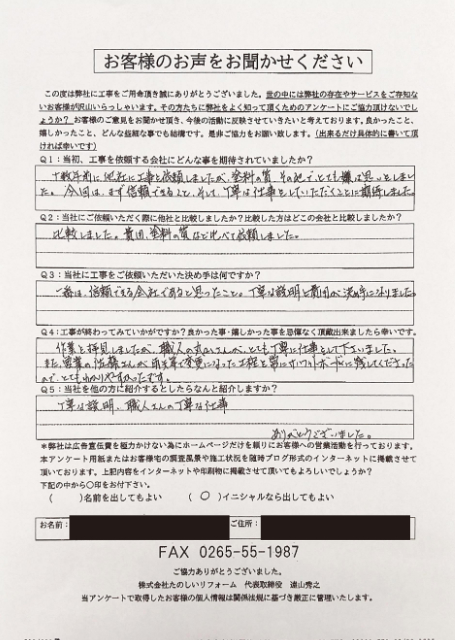 お客様のお声をお聞かせください
この度は弊社に工事をご用命頂き誠にありがとうございました。世の中には弊社の存在やサービスをご存知
ないお客様が沢山いらっしゃいます。その方たちに弊社をよく知って頂くためのアンケートにご協力頂けないでし
ょうか?お客様のご意見をお聞かせ頂き、今後の活動に反映させていきたいと考えております。良かったこと、
嬉しかったこと、どんな些細な事でも結構です。是非ご協力をお願い致します。(出来るだけ具体的に書いて頂
ければ幸いです)
Q1:当初、工事を依頼する会社にどんな事を期待されていましたか?
十数年前に他社に工事を依頼しましたが、塗料の質、その他でとても嫌な思いをしまし
た。今回は、まず信頼できること、そして、丁寧な仕事をしていただくことに期待しました。
Q2:当社にご依頼いただく際に他社と比較しましたか?比較した方はどこの会社と比較しましたか?
比較しました。費用、塗料の質など比べて依頼しました。
Q3:当社に工事をご依頼いただいた決め手は何ですか?
一番は、信頼できる会社であると思ったこと。丁寧な説明と費用が決め手になりました。
Q4:工事が終わってみていかがですか?良かった事・嬉しかった事を忌憚なく頂戴出来ましたら幸いです。
作業を拝見しましたが、職人の方々がとても丁寧に仕事をして下さいました。
また、営業の佐藤さんが変更になった工程を常にホワイトボードに残してくださった
ので、とてもわかりやすかったです。
Q5:当社を他の方に紹介するとしたらなんと紹介しますか?
丁寧な説明、職人さんの丁寧な仕事
ありがとうございました。
*弊社は広告宣伝費を極力かけない為にホームページだけを頼りにお客様への営業活動を行っております。
本アンケート用紙またはお客様宅の調査風景や施工状況を随時ブログ形式のインターネットに掲載させて
頂いております。上記内容をインターネットや印刷物に掲載させて頂いてもよろしいでしょうか?
下記の中から〇印をお付下さい。
( )名前を出してもよい (〇)イニシャルなら出してもよい
お名前: ご住所:
FAX 0265-55-1987
ご協力ありがとうございました。
株式会社たのしいリフォーム 代表取締役 遠山秀之
当アンケートで取得したお客様の個人情報は関係法規に基づき厳正に管理いたします。